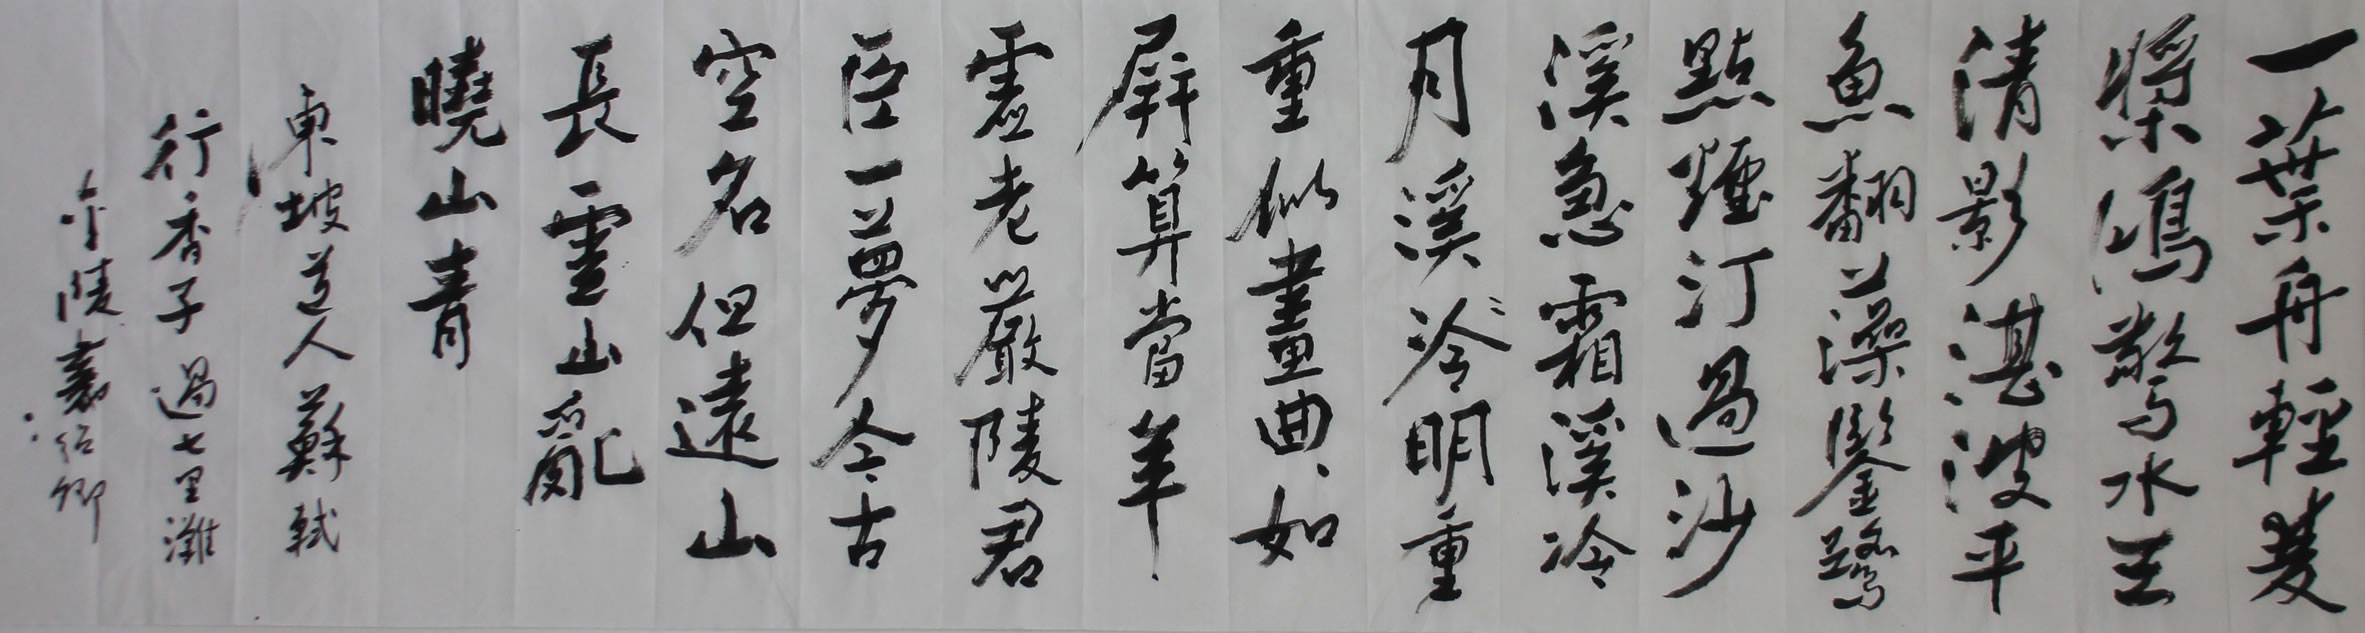 一葉舟輕雙
槳鴻驚水天
清影湛波平
魚翻藻鑒鷺
點煙汀過沙
溪急霜溪冷
月溪冷明重
重似畫曲、如
屏算當年
虛老嚴陵君
臣一夢今古
空名但遠山
長雲山亂
曉山青
東坡道人蘇軾
行香子過七里灘
金陵紹卿